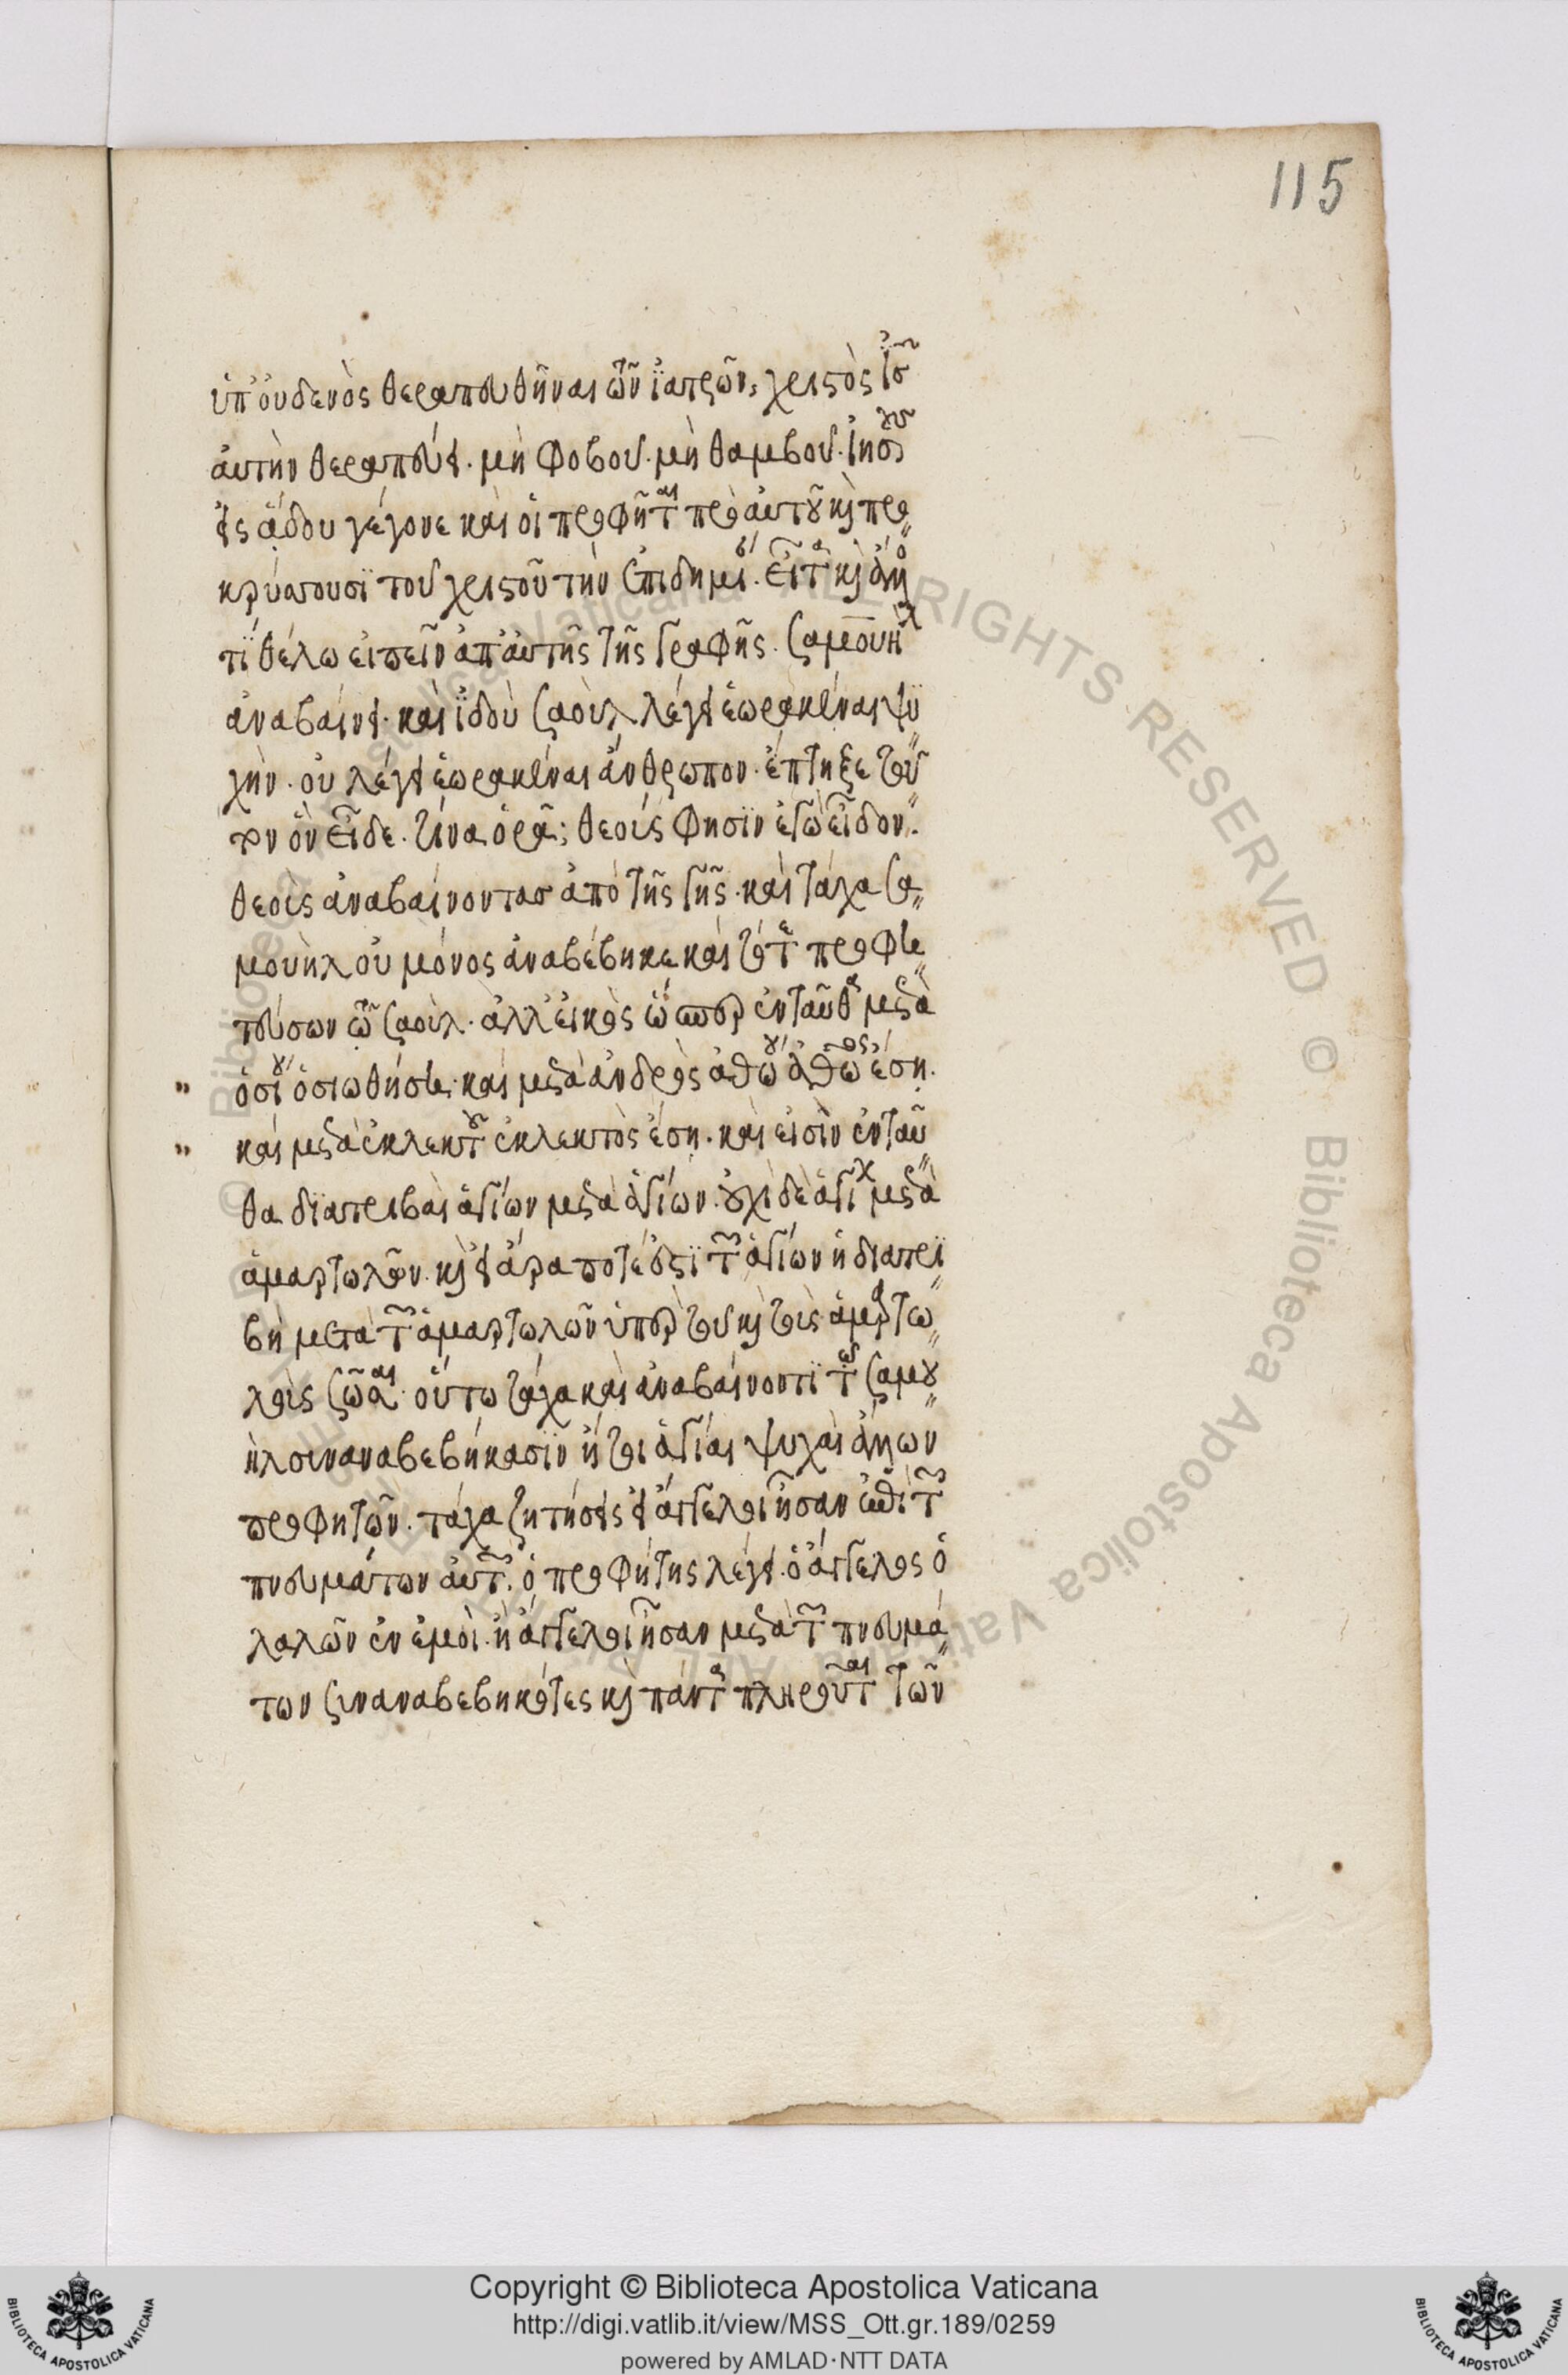 115
ὑπ' οὐδενὸς θεραπευθῆναι τῶν ἰατρῶν, χριστὸς ἰησοῦς
αὐτὴν θεραπεύει. μὴ φοβοῦ. μὴ θαμβοῦ. ἰησοῦς
εἰς ᾅδου γέγονε καὶ οἱ προφῆται πρὸ αὐτοῦ καὶ προ
κηρύσσουσι τοῦ χριστοῦ τὴν ἐπιδημίαν. εἶτα καὶ ἄλλο
τί θέλω εἰπεῖν ἀπ' αὐτῆς τῆς γραφῆς. Σαμουὴλ
ἀναβαίνει. καὶ ἰδοὺ Σαοὺλ λέγει ἑωρακέναι ψυ
χήν. οὐ λέγει ἑωρακέναι ἄνθρωπον. ἔπτηξε τοῦ
τον ὃν εἶδε. τίνα ὁρᾷ; θεούς φησιν ἐγὼ εἶδον.
θεοὺς ἀναβαίνοντας ἀπὸ τῆς γῆς. καὶ τάχα Σα
μουὴλ οὐ μόνος ἀναβέβηκε καὶ τότε προφη
τεύσων τῷ Σαούλ. ἀλλ' εἰκὸς ὥσπερ ἐνταῦθα μετὰ
ὁσίου ὁσιωθήσῃ. καὶ μετὰ ἀνδρὸς ἀθώου ἀθῶος ἔσῃ.
καὶ μετὰ ἐκλεκτοῦ ἐκλεκτὸς ἔσῃ. καὶ εἰσὶν ἐνταῦ
θα διατριβαὶ ἁγίων μετὰ ἁγίων. οὐχὶ δὲ ἁγίων μετὰ
ἁμαρτωλῶν. καὶ εἰ ἄρα ποτέ ἐστι τῶν ἁγίων ἡ διατρι
βὴ μετὰ τῶν ἁμαρτωλῶν ὑπὲρ τοῦ καὶ τοὺς ἁμαρτω
λοὺς σῶσαι. οὕτω τάχα καὶ ἀναβαίνοντι τῷ Σαμου
ὴλ συναναβεβήκασιν ἤτοι ἅγιαι ψυχαὶ ἄλλων
προφητῶν. τάχα ζητήσεις εἰ ἄγγελοι ἦσαν ἐπὶ τῶν
πνευμάτων αὐτῶν. ὁ προφήτης λέγει. ὁ ἄγγελος ὁ
λαλῶν ἐν ἐμοί. ἢ ἄγγελοι ἦσαν μετὰ τῶν πνευμά
των συναναβεβηκότες καὶ πάντα πληροῦται τῶν
Copyright © Biblioteca Apostolica Vaticana
http://digi.vatlib.it/view/MSS_Ott.gr.189/0259
powered by AMLAD·NTT DATA